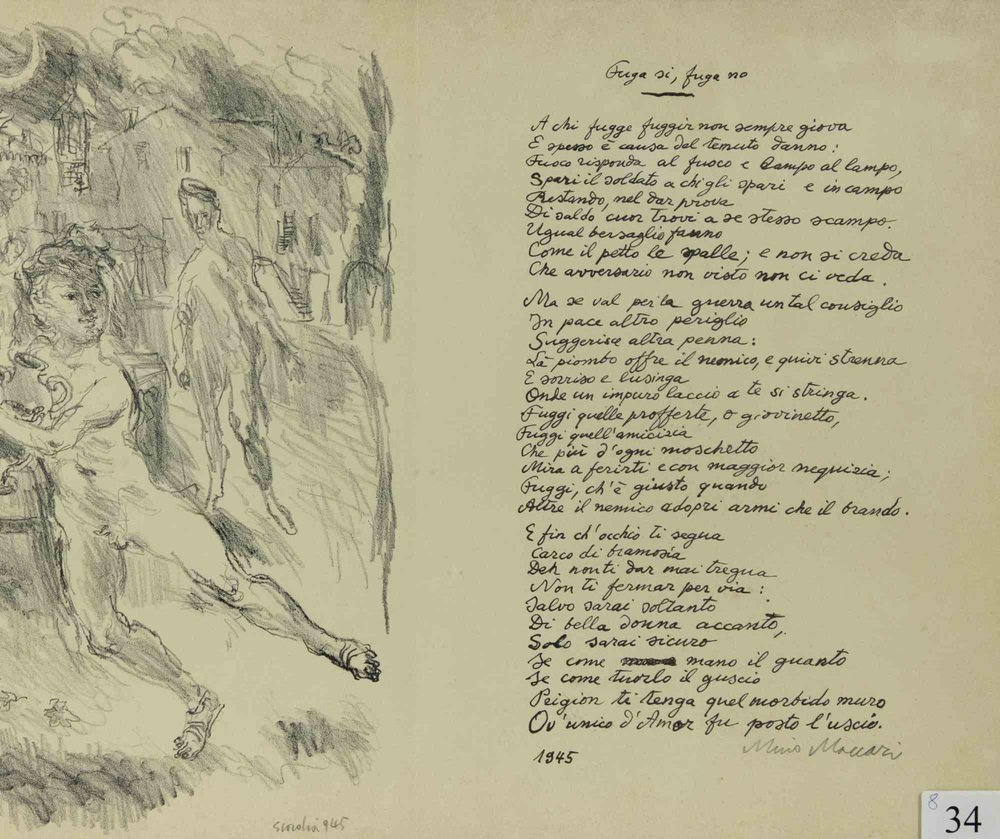 Fuga si, fuga no
A chi fugge fuggir non sempre giova
E spesso è causa del temuto danno:
Fuoco risponda al fuoco e lampo al lampo,
Spari il soldato a chi gli spari e in campo
Restando, nel dar prova
Di saldo cuor trovi a se stesso scampo.
Ugual bersaglio fanno
Come il petto le spalle; e non si creda
Che avversario non visto non ci veda.
Ma se val per la guerra un tal consiglio
In pace altro periglio
Suggerisce altra penna:
Là piombo offre il nemico, e quivi strenna
E sorriso e lusinga
Onde un impuro laccio a te si stringa.
Fuggi quelle profferte, o giovinetto,
Fuggi quell'amicizia
Che più d'ogni moschetto
Mira a ferirti e con maggior nequizia;
Fuggi, ch'è giusto quando
Altre il nemico adopri armi che il brando.
E fin ch'occhio ti segua
Carco di bramosia
Deh non ti dar mai tregua
Non ti fermar per via:
Salvo sarai soltanto
Di bella donna accanto,
Solo sarai sicuro
Se come mano il guanto
Se come tuorlo il guscio
Prigion ti tenga quel morbido muro
Ov'unico d'Amor fu posto l'uscio.
1945
Mino Maccari
945
8
34